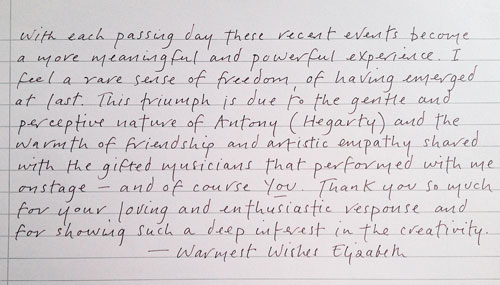 with each passing day these recent events become
a more meaningful and powerful experience. I
feel a rare sense of freedom, of having emerged
at last. This triumph is due to the gentle and
perceptive nature of Antony (Hegarty) and the
warmth of friendship and artistic empathy shared
with the gifted musicians that performed with me
onstage — and of course You. Thank you so much
for your loving and enthusiastic response and
for showing such a deep interest in the creativity.
— Warmest Wishes Elizabeth